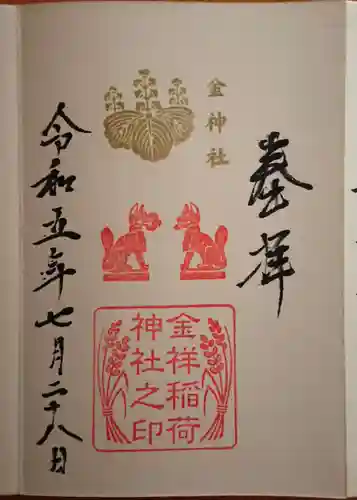 奉祥
金神社
金祥稲荷
神社之印
令和五年七月二十八日